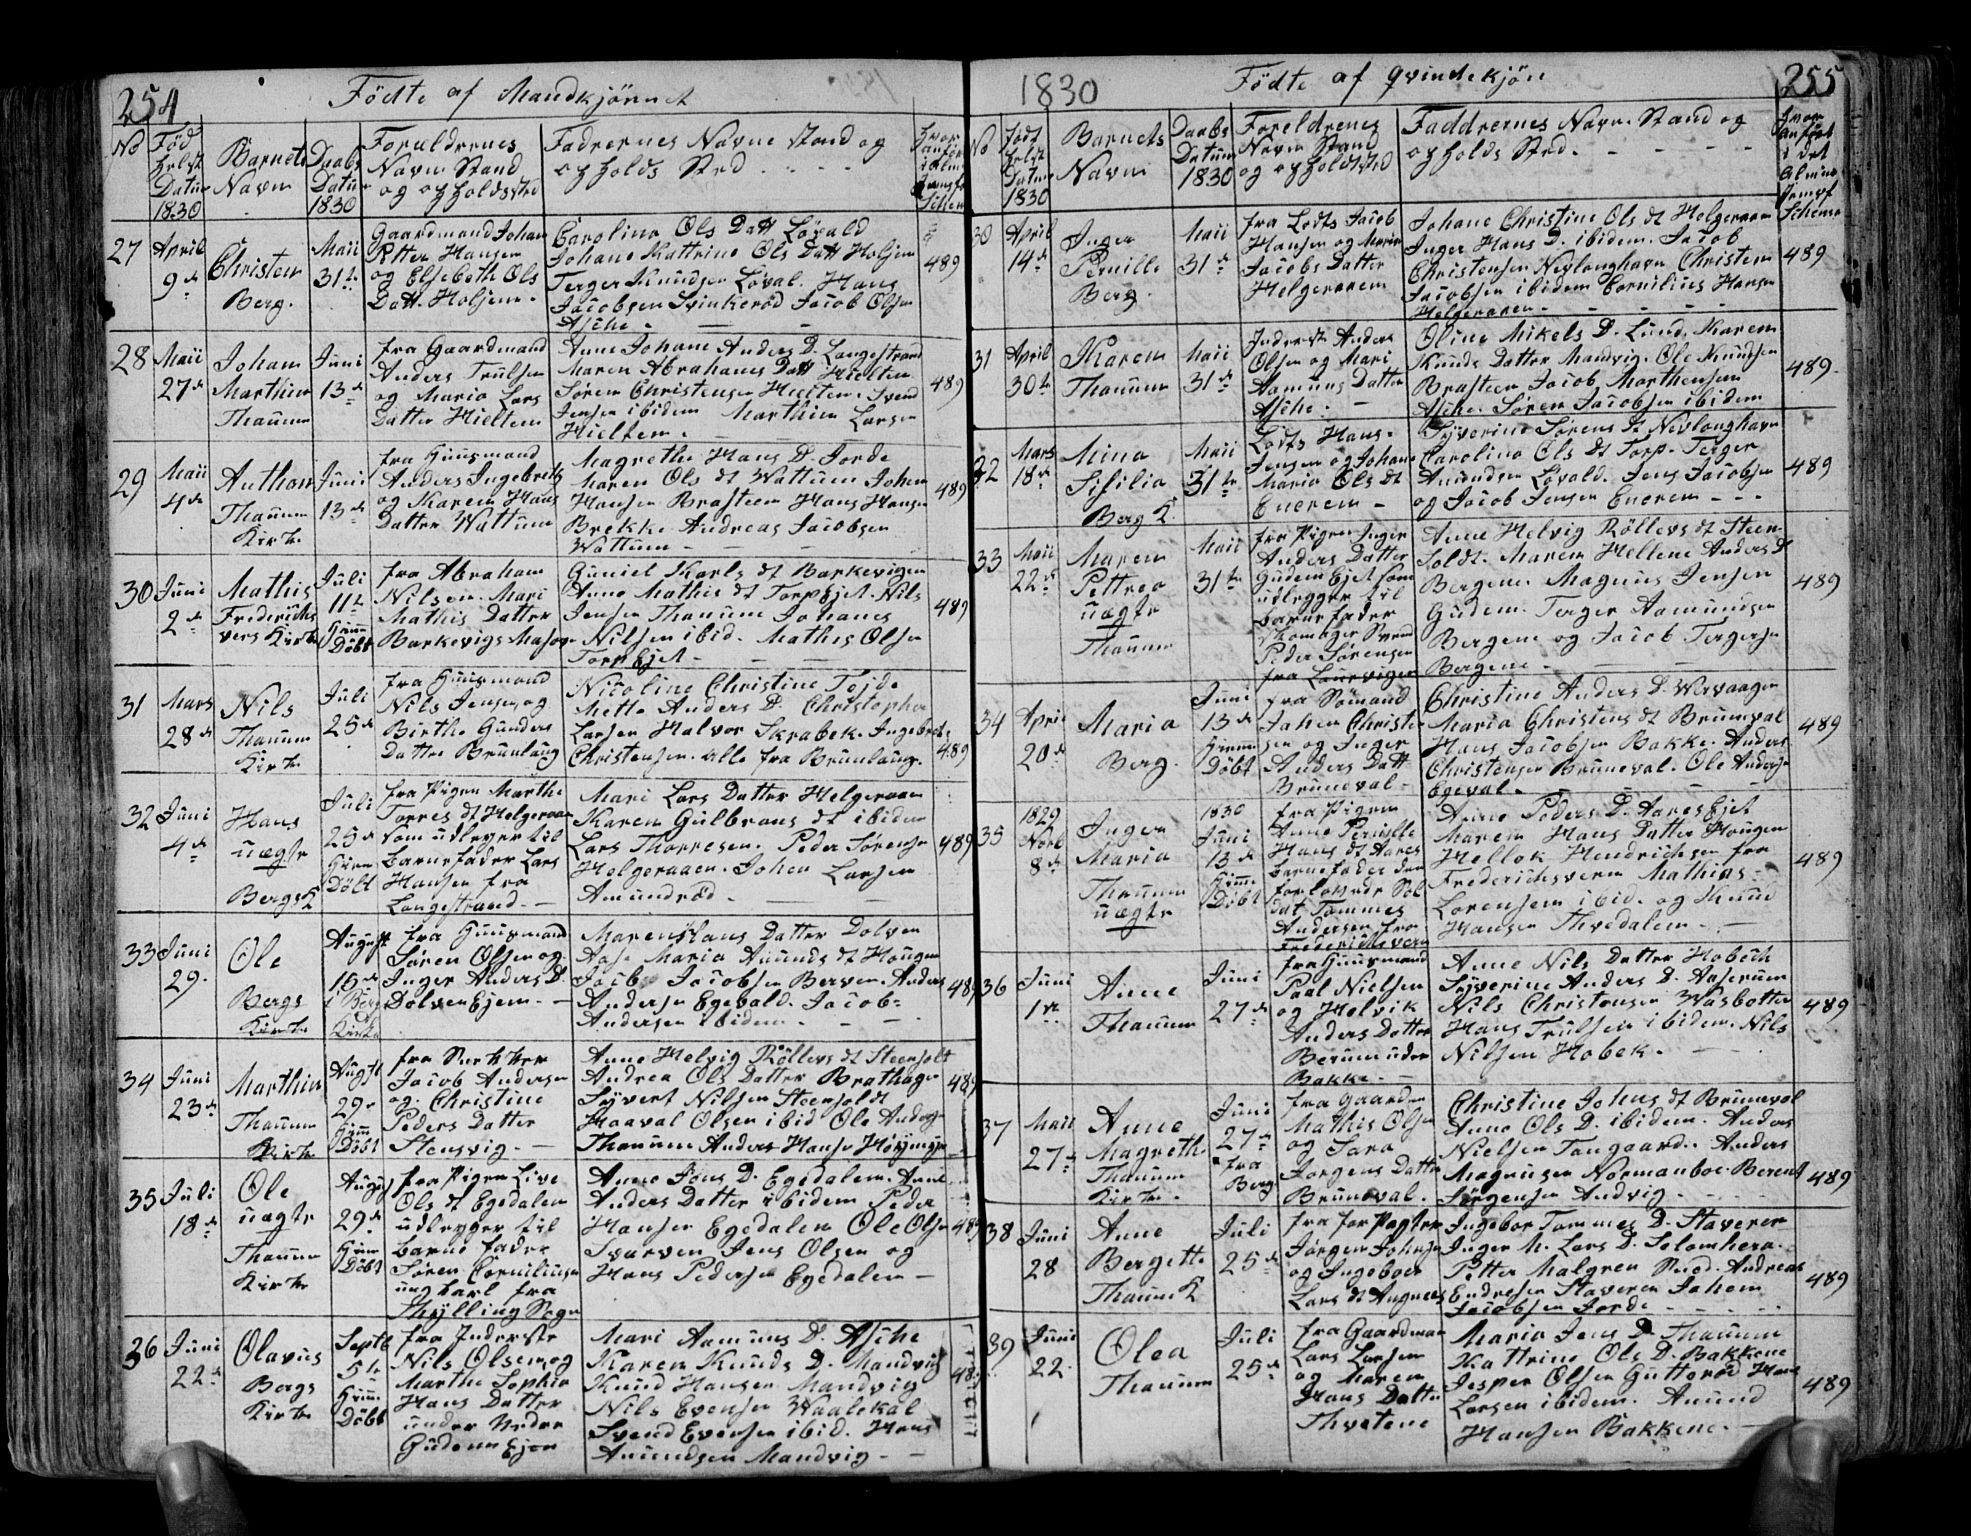 254
Födte af Mandkjönnet
No
Föd
helst
Datum
1830
Barnets
Navn
Daabs
Datum
1830
Foreldrenes
Navn Stand
og opholdssted
Fadrernes Navne stand og
opholds Sted
27
April
9de
Christen
Berg.
Maii
31te
Gaardmand Johan
Petter Hansen
og Elsebeth Ols
Datt. Holjem.
Carolina Ols Datt Lövald
Johane Kattrine Ols Datt Holjem
Terger Knudsen Löval. Hans
Jacobsen Svinkeröd Jacob Olsen
Aske.
489
28
Maii
27de
Johan
Marthin
Thanum
Juni
13de
fra Gaardmand
Anders Trulsen
og Maria Lars
Datter Hieltem
Anne Johane Anders D. Langestrand
Maren Abrahams Datt Hieltem
Sören Christensen Hieltem. Svend
Jensen ibidem Marthin Larsen
Hieltem.
489
29
Maii
4de
Anthon
Thanum
Kirke
Juni
13de
fra Huusmand
Anders Ingebrets
og Karen Hans
Datter Wattum
Magrethe Hans D. Jorde
Maren Ols dt Wattum Johan
Hansen Brasteen Hans Hansen
Brekke Andreas Jacobsen
Wattum
489
30
Juni
2de
Mathis
Frederichs
vern Kirke
Juli
11te
Hiem
Döbt
fra Abraham
Nilsen. Mari
Mathis Datter
Barkevigs Major
Guniel Karls dt Barkevigen
Anne Mathis dt Torp Ejet. Nils
Jensen Thanum Johanes
Nilsen ibid. Mathis Olsen
Torp Ejet.
489
31
Mars
28de
Nils
Thanum
Kirke
Juli
25de
fra Huusmand
Nils Jensen og
Birthe Gunders
Datter Brunlaug
Nicoline Christine Tojde
Mette Anders D. Christopher
Larsen Halvor Skrabek. Ingebret
Christensen. alle fra Brunlaug.
489
32
Juni
4de
Hans
uægte
Bergs K
Juli
25de
Hiem
Döbt
fra Pigen Marthe
Torres dt Helgeraaen
som udleger til
barnefader Lars
Hansen fra
Langestrand.
Mari Lars Datter Helgeraaen
Karen Gulbrans dt ibidem
Lars Thorresen. Peder Sörensen
Helgeraaen. Johan Larsen
Amundröd.
489
33
Juni
29.
Ole
Bergs
Kirke
August
15de
i Bergs
Kirke
fra Huusmand
Sören Olsen og
Inger Anders D.
Dolven Ejem.
Maren Hans Datter Dolven
Aase Maria Amunds dt Hougen
Jacob Jacobsen Berven. Anders
Andersen Egebald. Jacob
Andersen ibidem.
489
34
Juni
23de
Marthin
Thanum
Kirke
August
29de
Hiem
Döbt
fra
Jacob Andersen
og Christine
Peders Datter
Stensvig
Anne Helvig Röllevs dt Steenholt
Andrea Ols Datter Brathagen
Syvert Nilsen Steenholdt
Haaval Olsen ibid Ole Anders
Thanum Anders Hansen
489
35
Juli
18de
Ole
uægte
Thanum
Kirke
August
29de
Hiem
Döbt
fra Pigen Live
Ols dt Egedalen
udlegger til
barne fader
Sören Corniliusen
ungkarl fra
Thylling Sogn
Anne Jens D. Egedalen. Anne
Anders Datter ibidem Peder
Hansen Egedalen Ole Olsen
Svarven Jens Olsen og
Hans Pedersen Egedalen
489
36
Juni
22de
Olavus
Bergs
Kirke
Septb
5te
Hiem
Döbt
fra Inderste
Nils Olsen og
Marthe Sophie
Hans Datter
under Neder
Gudem Ejer
Mari Aamuns D. Aske
Karen Knuds D. Mandvig
Knud Hansen Mandvig
Nils Evensen Waalekal
Svend Evensen ibid. Hans
Amundsen Mandvig
489
1830
Födte af qvindekjön
255
No
födt
helst
Datum
1830
Barnets
Navn
Daabs
Datum
1830
Foreldrenes
Navn Stand
og opholdssted
Faddrernes Navn. Stand og
opholds Sted.
hvor
anfört
i det
Almin
Jevnf
Schema
30
April
14de
Inger
Pernille
Berg.
Maii
31te
fra Lods Jacob
Hansen og Maren
Jacobs Datter
Helgeraaen
Johane Christine Ols dt Helgeraaen
Inger Hans D. ibidem. Jacob
Christensen Nevlonghavn Christen
Jacobsen ibidem Cornilius Hansen
Helgeraaen.
489
31
April
30te
Karen
Thanum
Maii
31te
Inderst Anders
Olsen og Mari
Aamuns Datter
Aske.
Oline Mikels D. Lund. Karen
Knuds Datter Mandvig. Ole Knudsen
Brasteen Jacob Marthensen
Aske. Sören Jacobsen ibidem
489
32
Mars
18de
Mina
Sisilia
Berg K.
Maii
31te
Lods Hans
Jensen og Johane
Maria Ols dt
Eneren
Syverine Sörens dt Nevlonghavn
Carolina Ols dt Torp. Terger
Amundsen Lövald. Jens Jacobsen
og Jacob Jensen Eneren
489
33
Maii
22de
Maren
Pettrea
uægte
Thanum
Maii
31te
fra Pigen Inger
Anders Datter
Gudem Ejet som
udlegger til
barnefader
Skomager Svend
Peder Sörensen
fra Laurvigen
Anne Helvig Röllevs dt Steen
holdt. Maren Hellene Anders D
Bergene. Magnus Jensen
Gudem. Terger Aamundsen
Bergene og Jacob Tergersen
Bergene.
489
34
April
20de
Maria
Berg.
Juni
13de
Hiem
Döbt
fra Sömand
Johan Christen
sen og Inger
Anders Datt
Bruneval
Christine Anders D. Wervaagen
Maria Christens dt Brunval
Hans Jacobsen Bakke. Anders
Christensen Bruneval. Ole Andersen
Egeval.
489
35
1829
Novb
8de
Inger
Maria
Thanum
uægte
1830
Juni
13de
Hiem
Döbt
fra Pigen
Anne Pernille
Hans dt Aares
barnefader den
forlovede Sol
dat Tommes
Andersen fra
Frederichsvern
Anne Peders D. Aares Ejet
Maren Hans Datter Hougen
Hellok Hendrichsen fra
Frederichsvern Mathias
Lorensen ibid. og Knud
Hansen Thvedalen
489
36
Juni
1te
Anne
Thanum
Juni
27de
fra Huusmand
Paal Nielsen
og Helvik
Anders Datter
Berum under
Bakke.
Anne Nils Datter Hobeck
Syverine Anders D. Aaserum
Nils Christensen Wasbotten
Hans Trulsen ibidem. Nils
Nilsen Hobek.
489
37
Maii
27de
Anne
Magrethe
Thanum
Kirke.
Juni
27de
fra
Berg
fra Gaardm
Mathis Olsen
og Sara
Jorgens Datter
Bruneval.
Christine Johns dt Bruneval
Anne Ols D. ibidem. Anders
Nielsen Tangaard. Anders
Magnusen Normanboe Berent
Jörgensen Andvig.
489
38
Juni
28
Anne
Bergette
Thanum K
Juli
25de
fra forpagter
Jörgen Johnsen
og Ingeboer
Lars dt Angnes
Ingebor Tommes D. Staveren
Inger M. Lars D. Selomhera.
Petter Malgren Andreas
Endresen Staveren Johan
Jacobsen Jorde
489
39
Juni
22.
Olea
Thanum
Juli
25de
fra Gaardman
Lars Larsen
og Maren
Hans Datter
Thvetene
Maria Jens D. Thanum
Kattrine Ols D. Bakkene
Jesper Olsen Gutteröd Hans
Larsen ibidem. Amund
Hansen Bakkene.
489